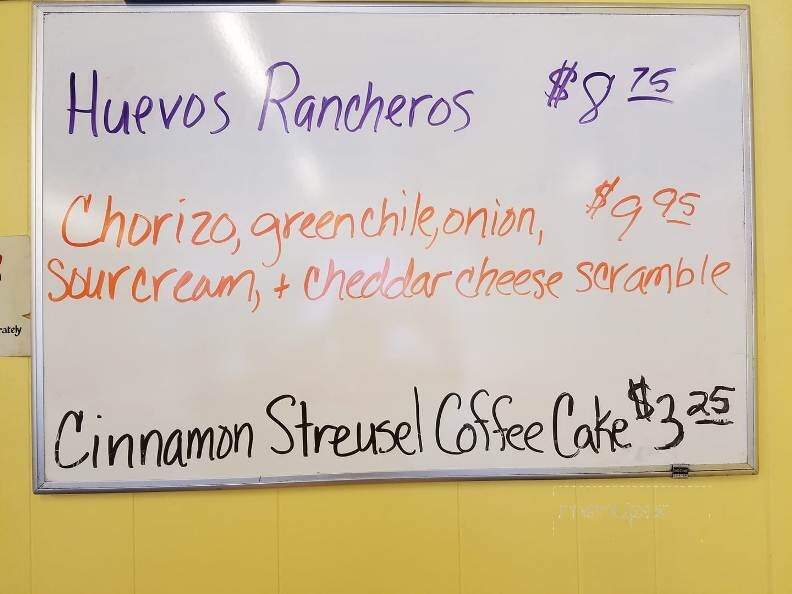 Huevos Rancheros $8 75
Chorizo, green chile, onion, $9 95
sour cream, + cheddar cheese scramble
Cinnamon Streusel Coffee Cake $3 25
rately